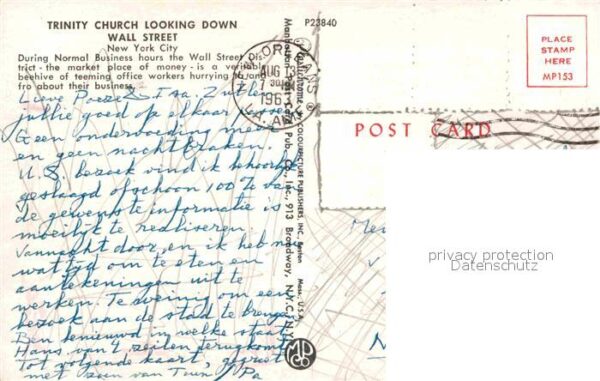 TRINITY CHURCH LOOKING DOWN
WALL STREET
New York City
During Normal Business hours the Wall Street Dis-
trict - the market place of money - is a veritable
beehive of teeming office workers hurrying to and
fro about their business.
P23840
PLACE
STAMP
HERE
MP153
AUG 13
196
LA.
POST CARD
COLOURPICTURE PUBLISHERS, INC., Boston Mass., U.S.A.
Manhattan Post Card Pub. Co., Inc., 913 Broadway, N.Y.C., N.Y.
MP
CO
Lieve Poeze & Ina. Zullen
jullie goed op elkaar passen
Geen ondervoeding meer
en geen nachtbraken.
U.S. bezoek vind ik behoorlijk
geslaagd ofschoon 100% van
de gewenste informatie is
moeilijk te realiseren.
Vannacht door en ik heb nu
wat tijd om te eten en
aantekeningen uit te
werken. Te weinig om een
bezoek aan de stad te brengen
Ben benieuwd in welke staat
Hans van 't zeilen terugkomt
Tot volgende kaart, gegroet
met zoen van Pa
privacy protection
Datenschutz